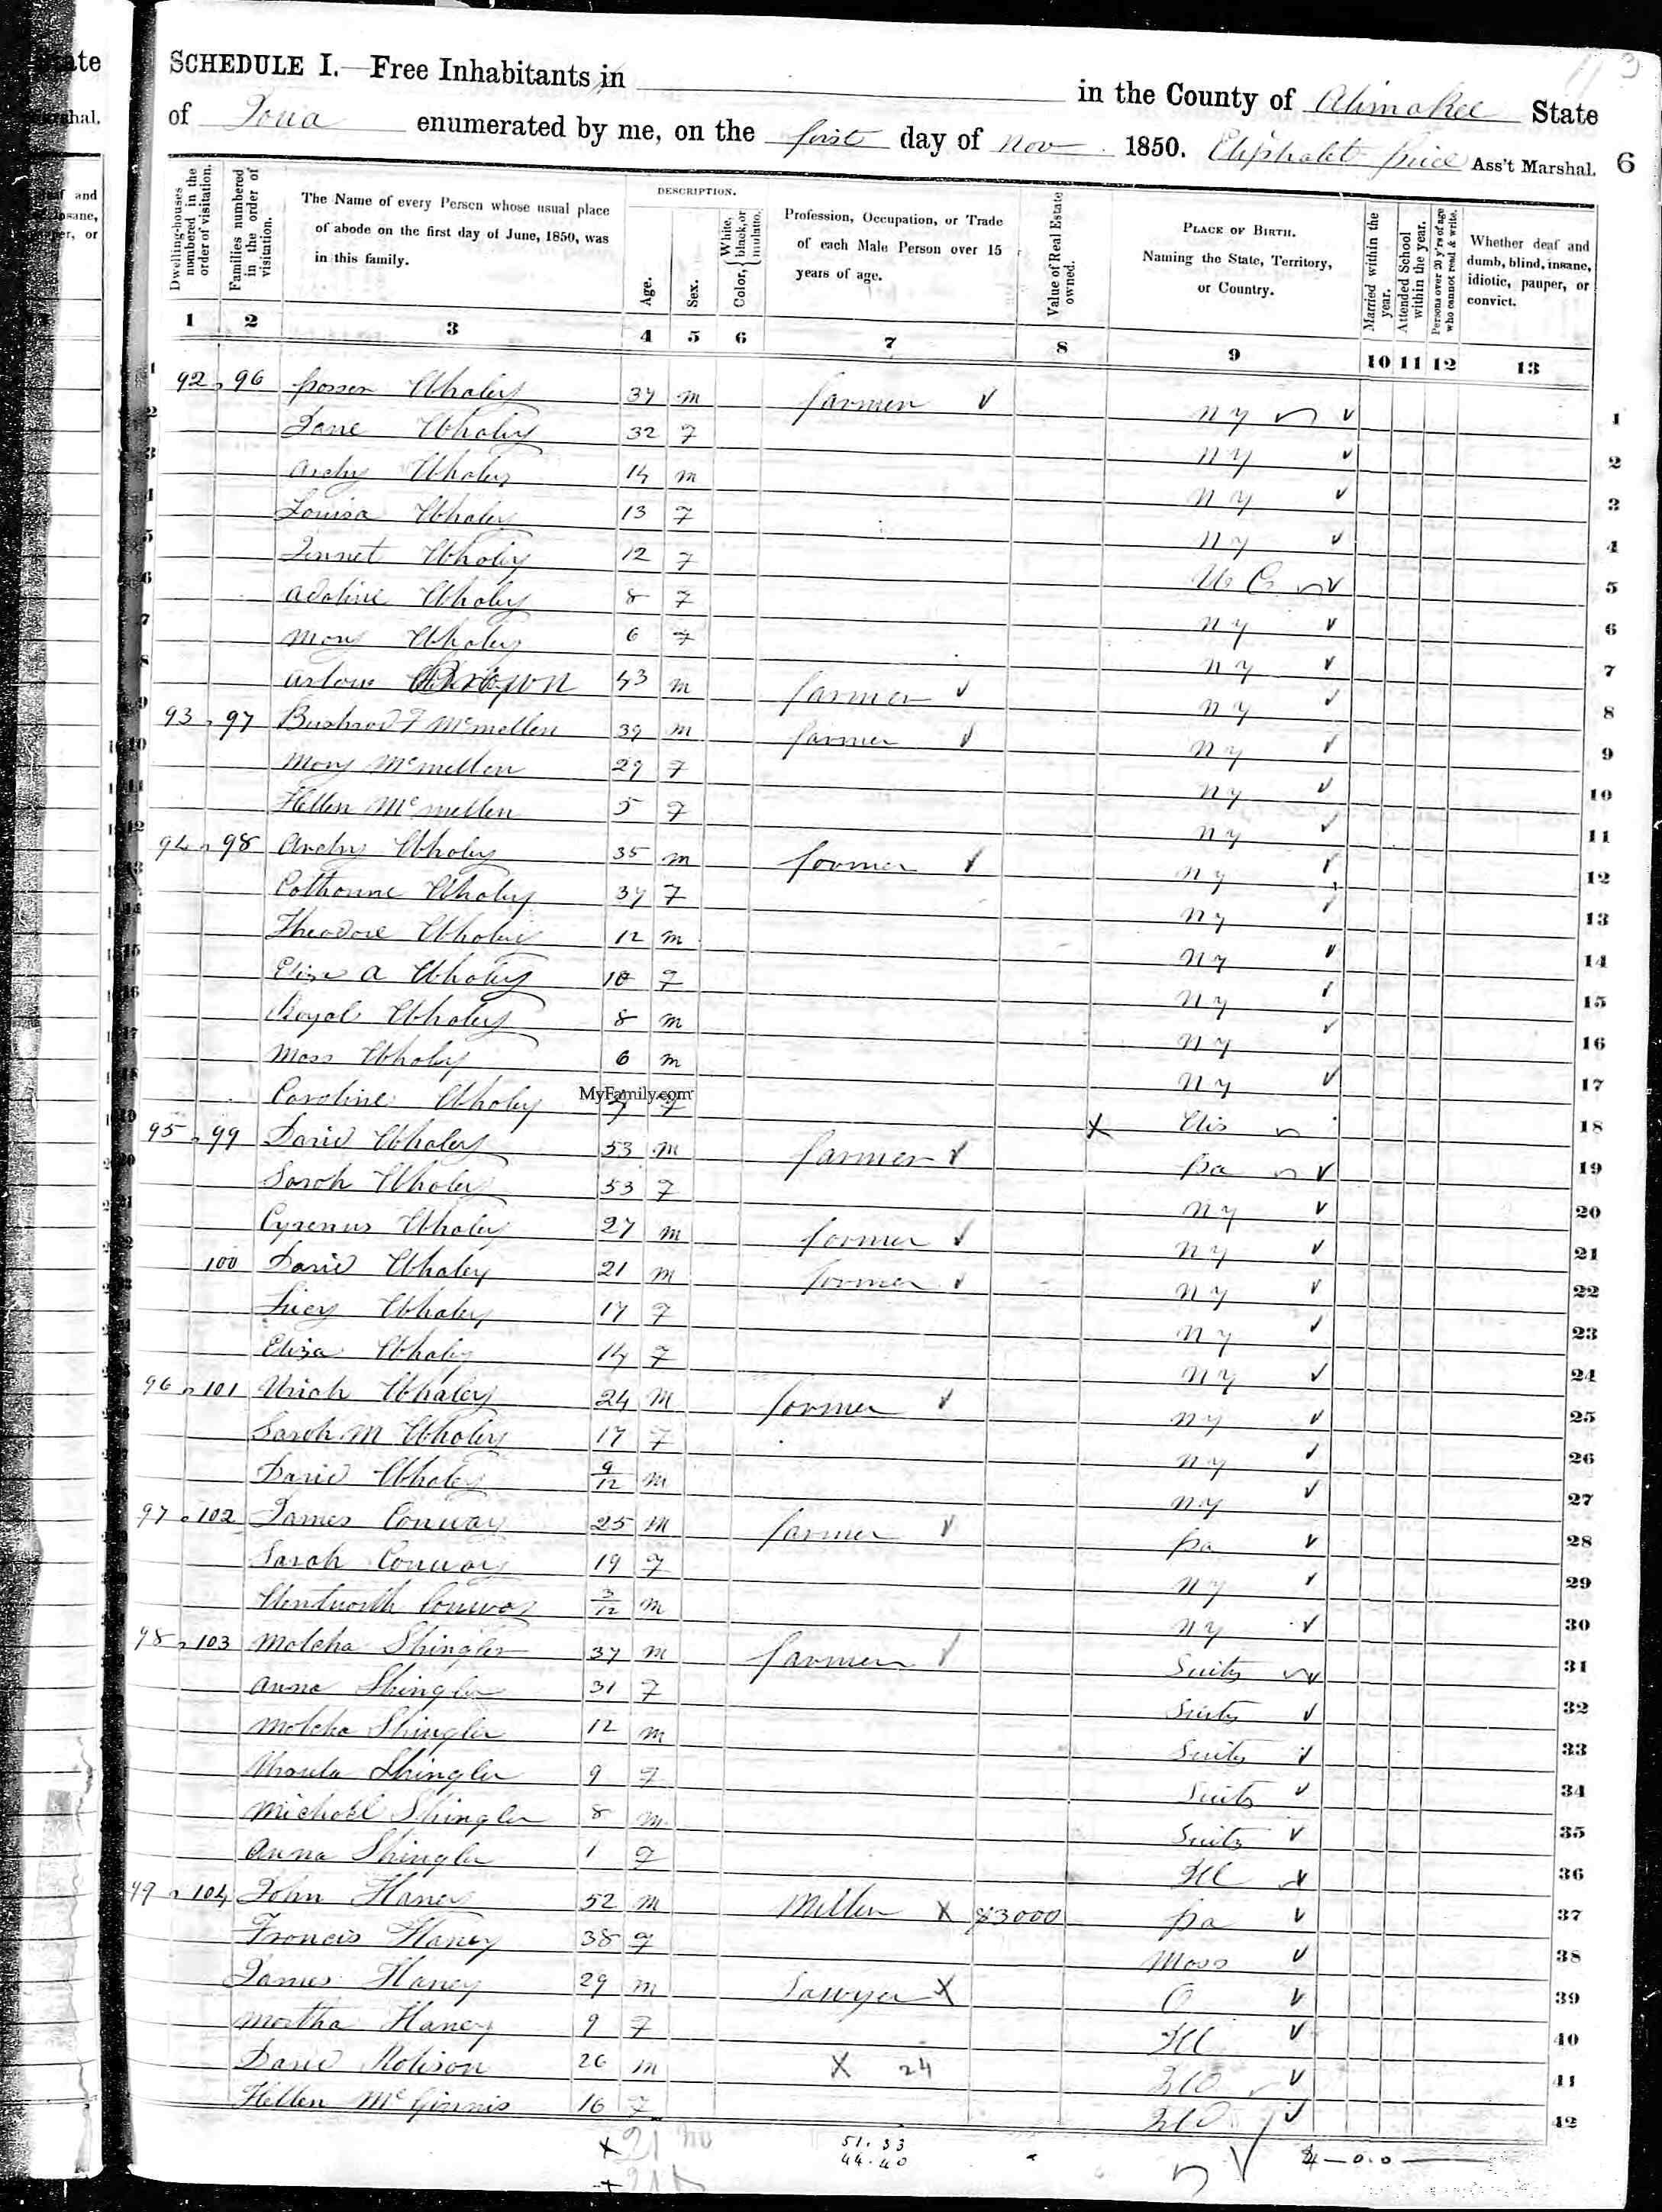 SCHEDULE I.—Free Inhabitants in in the County of Alimakee State
of Iowa enumerated by me, on the first day of Nov 1850. Eliphalet Price Ass't Marshal. 6
Dwelling-houses numbered in the order of visitation.
Families numbered in the order of visitation.
The Name of every Person whose usual place of abode on the first day of June, 1850, was in this family.
DESCRIPTION.
Age.
Sex.
Color, { White, black, or mulatto.
Profession, Occupation, or Trade of each Male Person over 15 years of age.
Value of Real Estate owned.
PLACE OF BIRTH. Naming the State, Territory, or Country.
Married within the year.
Attended School within the year.
Persons over 20 y'rs of age who cannot read & write.
Whether deaf and dumb, blind, insane, idiotic, pauper, or convict.
1 2 3 4 5 6 7 8 9 10 11 12 13
92 96 Whaley 37 m farmer N Y 1
Jane Whaley 32 F N Y 2
Archy Whaley 14 m N Y 3
Louisa Whaley 13 F N Y 4
Jennet Whaley 12 F U C 5
Adoline Whaley 8 F N Y 6
Mary Whaley 6 F N Y 7
Brown 43 m farmer N Y 8
93 97 Bushrod F McMellen 39 m farmer N Y 9
Mary McMellen 29 F N Y 10
Hellen McMellen 5 F N Y 11
94 98 Archy Whaley 35 m farmer N Y 12
Catharine Whaley 37 F N Y 13
Theodore Whaley 12 m N Y 14
Eliza A Whaley 10 F N Y 15
Royal Whaley 8 m N Y 16
Moss Whaley 6 m N Y 17
Caroline Whaley F X Wis 18
MyFamily.com
95 99 David Whaley 53 m farmer Pa 19
Sarah Whaley 53 F N Y 20
Cyrenus Whaley 27 m farmer N Y 21
100 David Whaley 21 m farmer N Y 22
Lucy Whaley 17 F N Y 23
Eliza Whaley 14 F N Y 24
96 101 Uriah Whaley 24 m farmer N Y 25
Sarah M Whaley 17 F N Y 26
David Whaley 9/12 m N Y 27
97 102 James Conway 25 m farmer Pa 28
Sarah Conway 19 F N Y 29
Wentworth Conway 3/12 m N Y 30
98 103 Molcha Shingler 37 m farmer Suitz 31
Anna Shingler 31 F Suitz 32
Molcha Shingler 12 m Suitz 33
Ursula Shingler 9 F Suitz 34
Michael Shingler 8 m Suitz 35
Anna Shingler 1 F Ill 36
99 104 John Haney 52 m Miller X $3000 Pa 37
Francis Haney 38 F Mass 38
James Haney 29 m Sawyer X O 39
Martha Haney 9 F Ill 40
David Robison 26 m X 24 41
Hellen McGinnis 16 F 42
51.33
44.40